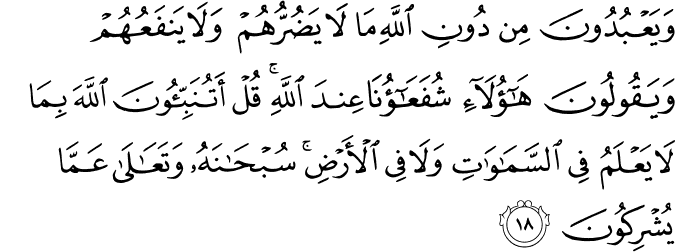 وَيَعْبُدُونَ مِن دُونِ ٱللَّهِ مَا لَا يَضُرُّهُمْ وَلَا يَنفَعُهُمْ
وَيَقُولُونَ هَـٰٓؤُلَآءِ شُفَعَـٰٓؤُنَا عِندَ ٱللَّهِ ۚ قُلْ أَتُنَبِّـُٔونَ ٱللَّهَ بِمَا
لَا يَعْلَمُ فِى ٱلسَّمَـٰوَٰتِ وَلَا فِى ٱلْأَرْضِ ۚ سُبْحَـٰنَهُۥ وَتَعَـٰلَىٰ عَمَّا
يُشْرِكُونَ ١٨